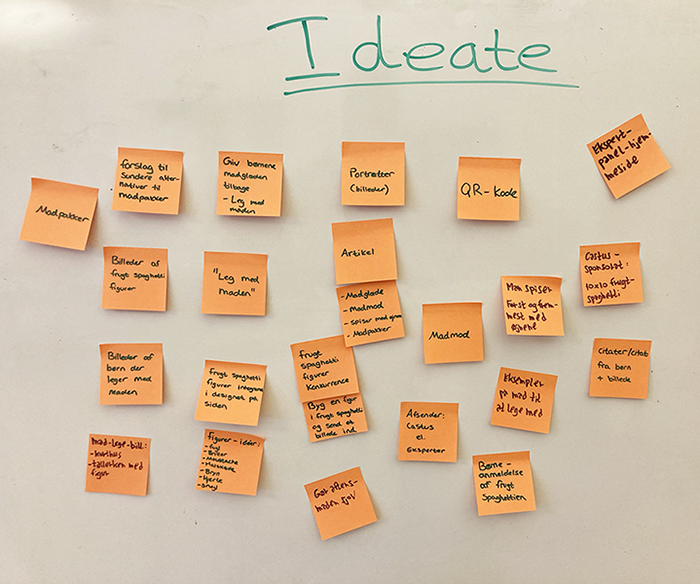 Ideate
Madpakker
forslag til
sundere alter-
nativer til
madpakker
Giv børnene
madglæden
tilbage
- Leg med
maden
Portrætter
(billeder)
QR-Kode
Ekspert-
panel-hjem-
meside
Billeder af
frugt spaghetti
figurer
"Leg med
maden"
Artikel
- Madglæde
- Madmod
- spiser med øjnene
- Madpakker
Madmod
Man spiser
Først og frem-
mest med
øjnene
Castus-
sponsorat:
10x10 frugt-
spaghetti
Billeder af
børn der
leger med
maden
Frugt spaghetti
figurer integreres
i designet på
siden
Frugt
spaghetti
figurer
Konkurrence
Byg en figur
i frugt spaghetti
og send et
billede ind
Afsender:
Castus
el.
Eksperter
Eksempler
på mad til
at lege med
Citater/citat
fra børn
+ billede
mad-lege-bill.:
- korthus
- tallerken med
figur
Figurer-idéer:
- fugl
- Briller
- Moustache
- Bryn
- Hjerte
- Snegl
Gør aftens-
maden sjov
Børne-
anmeldelse
af frugt
Spaghettien